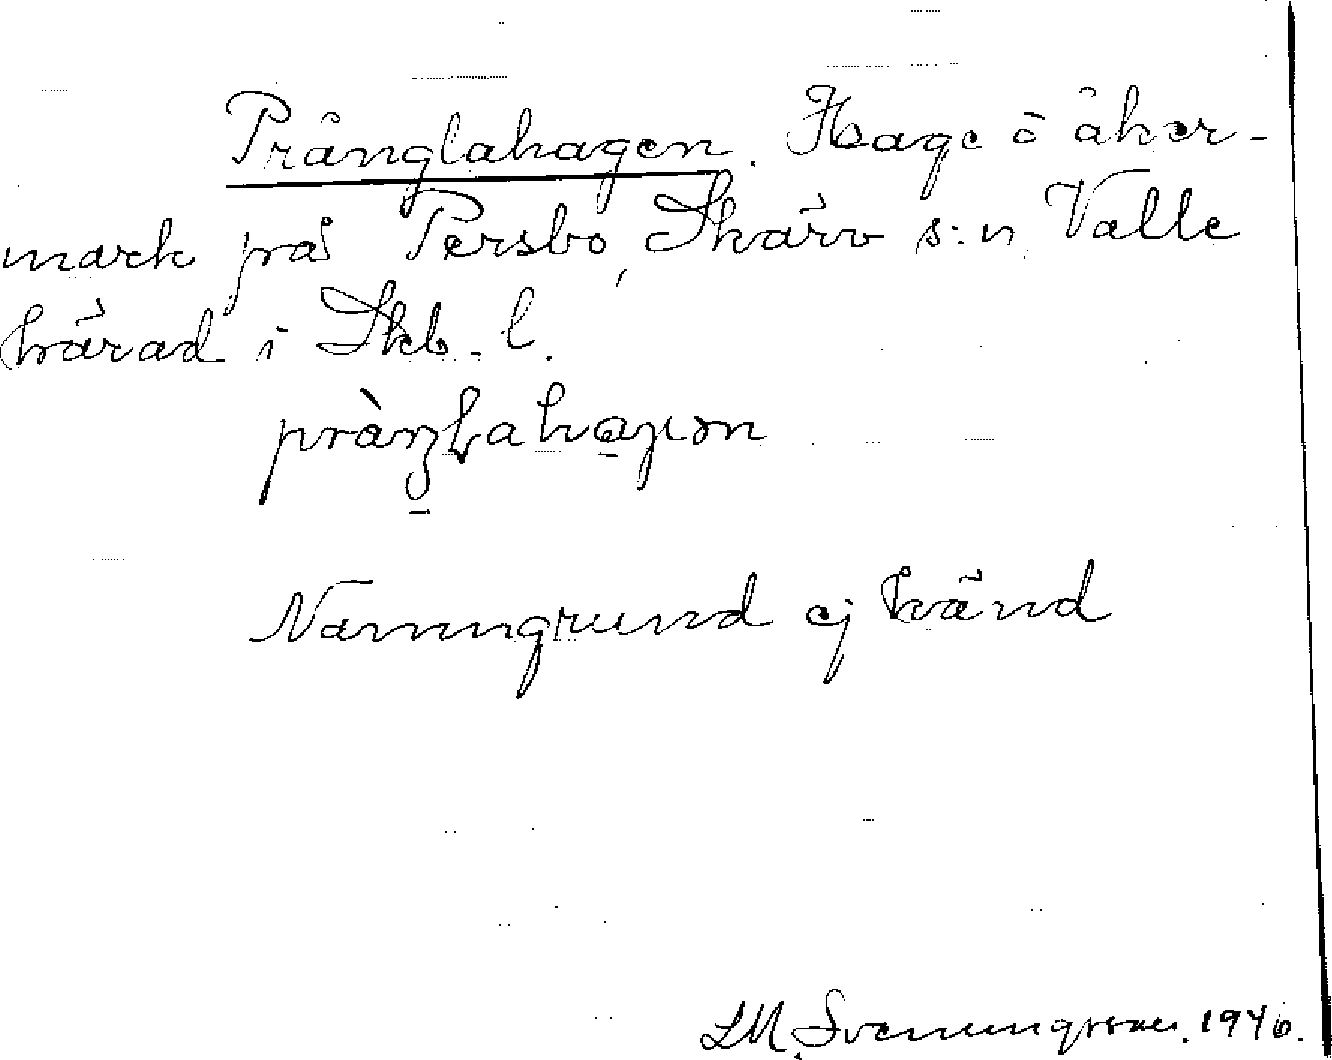 Prånglahagen. Hage å åker-
mark på Persbo, Skärv s:n, Valle
härad i Skb. l.
Namngrund ej känd
S.M. Svenungsson. 1946.